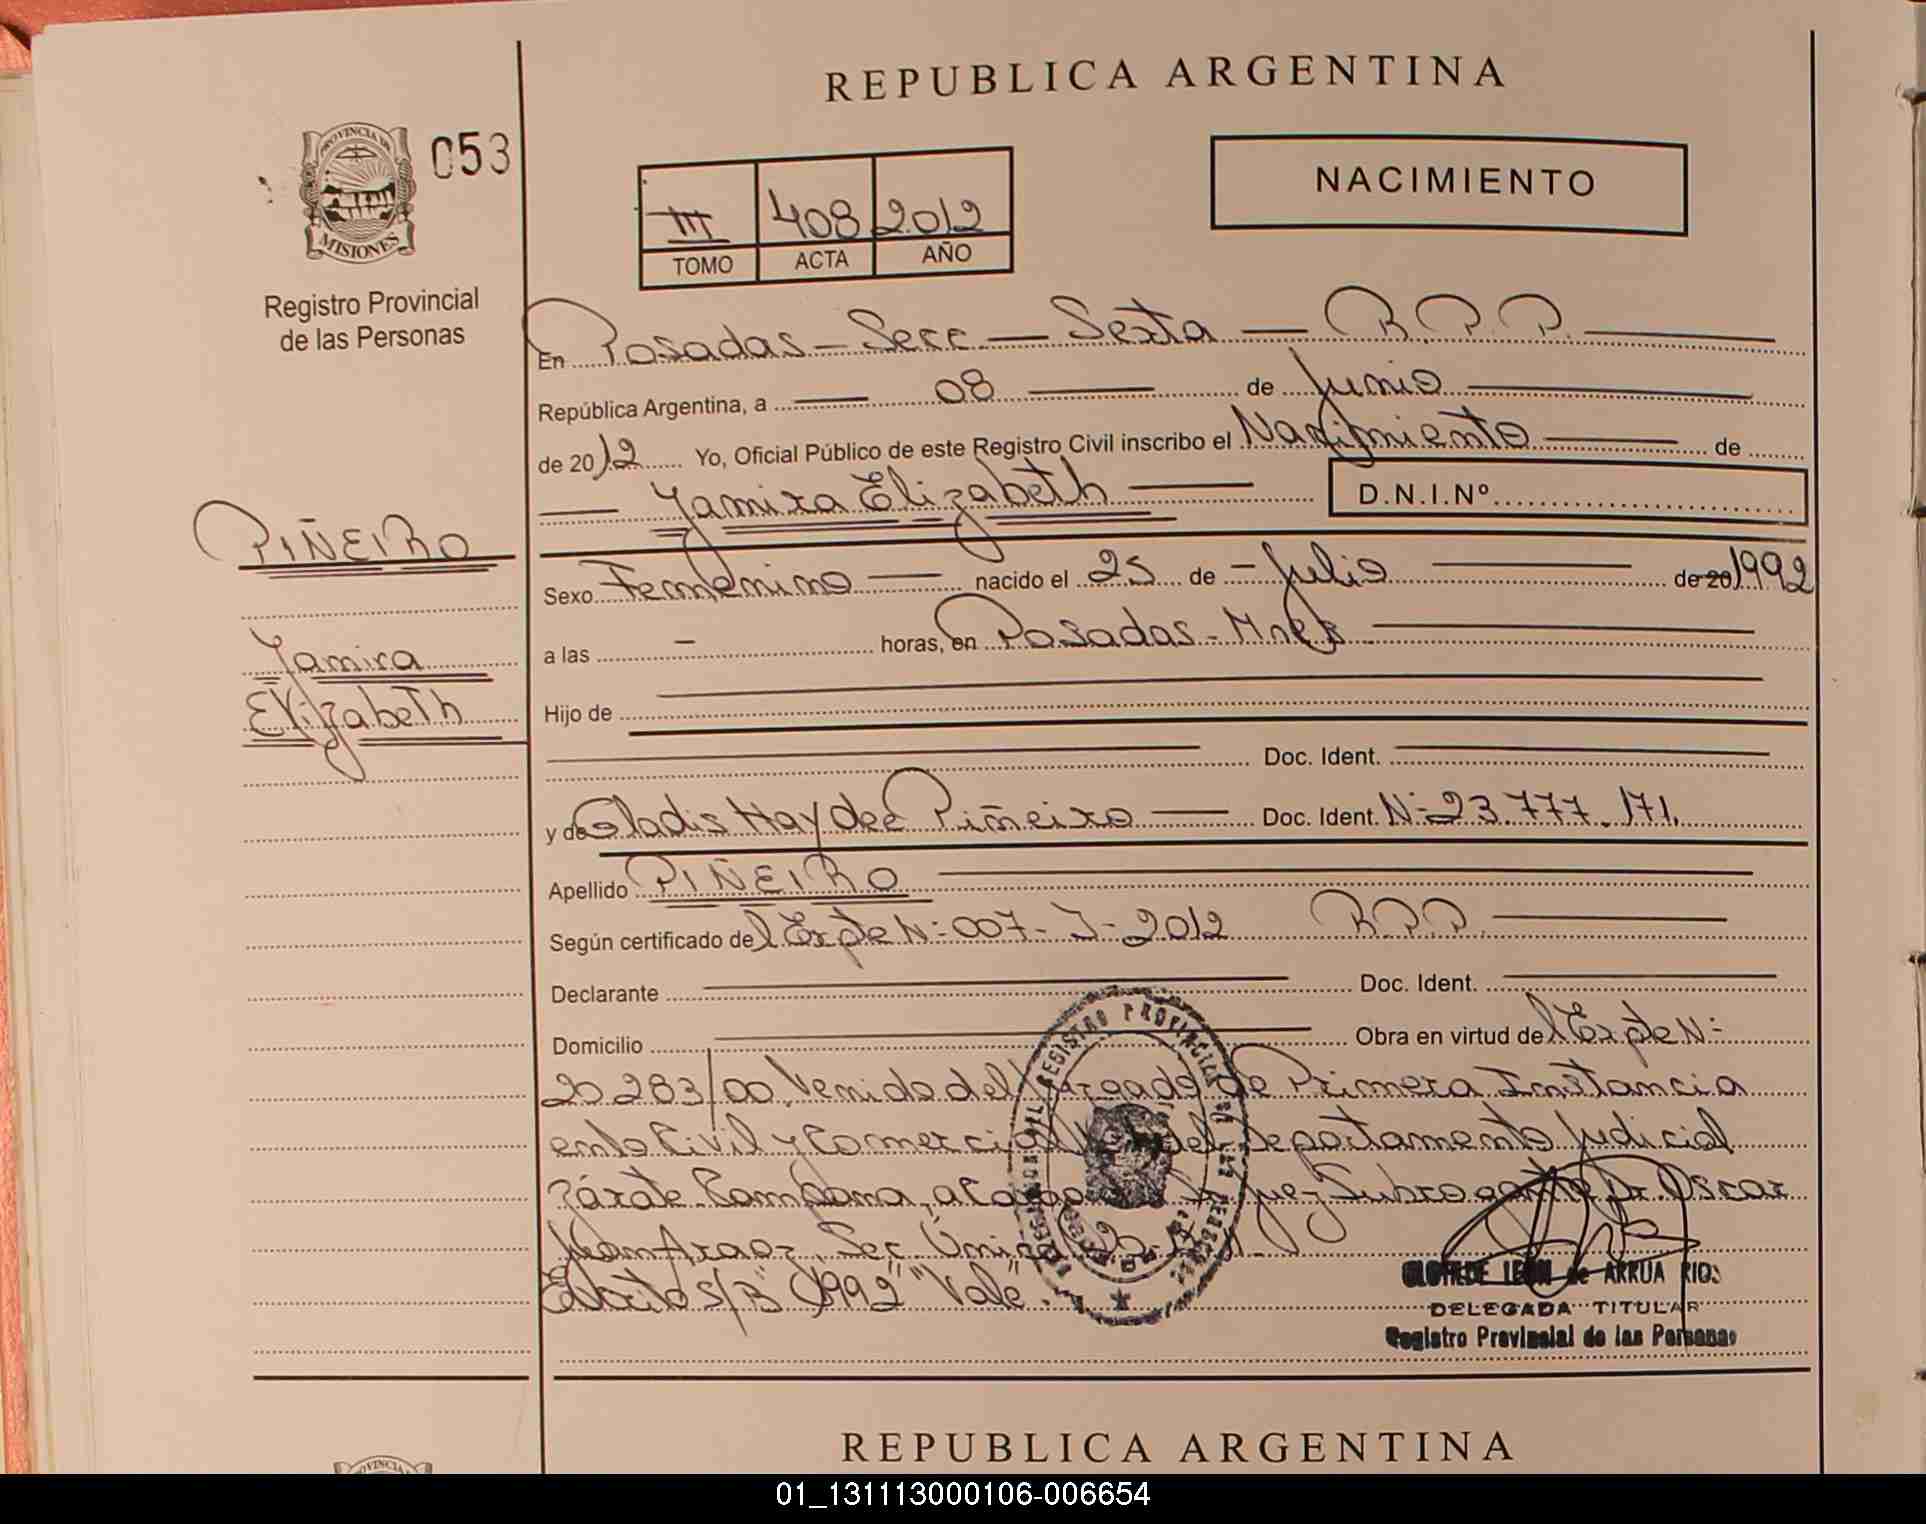 REPUBLICA ARGENTINA
PROVINCIA DE
MISIONES
053
Registro Provincial
de las Personas
III 408 2012
TOMO ACTA AÑO
NACIMIENTO
En Posadas - Secc - Sexta - R.P.P.
República Argentina, a 08 de Junio
de 2012 Yo, Oficial Público de este Registro Civil inscribo el Nacimiento de
Yamira Elizabeth D.N.I.Nº
PIÑEIRO
Yamira
Elizabeth
Sexo Femenino nacido el 25 de - Julio de 20 1992
a las - horas, en Posadas - Mnes
Hijo de
Doc. Ident.
y de Gladis Haydee Piñeiro Doc. Ident. Nº 23.777.171.
Apellido PIÑEIRO
Según certificado del Expte Nº 007-J-2012 R.P.P.
Declarante Doc. Ident.
Domicilio Obra en virtud del Expte Nº
20.283/00, Venido del Juzgado de Primera Instancia
en lo Civil y Comercial del Departamento Judicial
Zárate Campana, a Cargo Juez Subrogante Dr. Oscar
Juan Araoz, Sec. Única
S/B "1992" "Vale".
REGISTRO PROVINCIAL DE LAS PERSONAS
CLOTILDE LEON de ARRUA RIOS
DELEGADA TITULAR
Registro Provincial de las Personas
REPUBLICA ARGENTINA
01_131113000106-006654